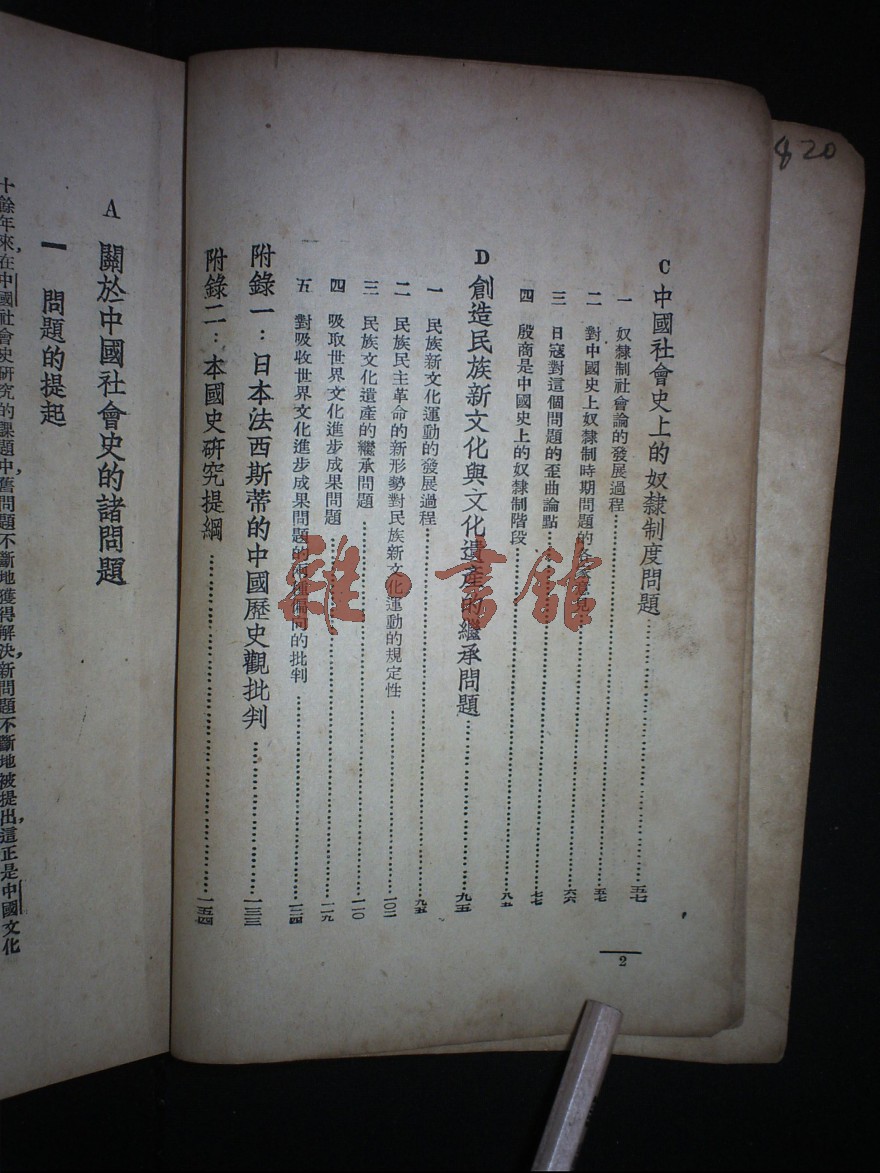 C 中國社會史上的奴隸制度問題……五七
一 奴隸制社會論的發展過程……五七
二 對中國史上奴隸制時期問題的各家意見……六六
三 日寇對這個問題的歪曲論點……七七
四 殷商是中國史上的奴隸制階段……八五
D 創造民族新文化與文化遺產的繼承問題……九五
一 民族新文化運動的發展過程……九五
二 民族民主革命的新形勢對民族新文化運動的規定性……一〇二
三 民族文化遺產的繼承問題……一一〇
四 吸取世界文化進步成果問題……一一九
五 對吸收世界文化進步成果問題的兩種偏向的批判……一二四
附錄一：日本法西斯蒂的中國歷史觀批判……一三三
附錄二：本國史研究提綱……一五四
2
A 關於中國社會史的諸問題
一 問題的提起
十餘年來，在中國社會史研究的課題中，舊問題不斷地獲得解決，新問題不斷地被提出，這正是中國文化
820
雜·書館